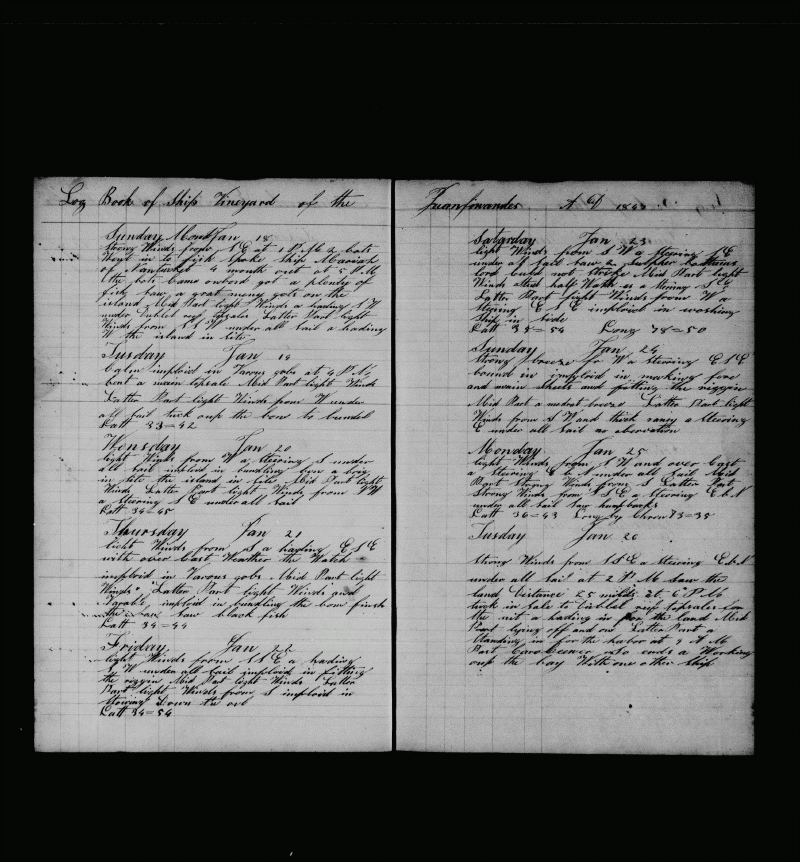 Log Book of Ship Vineyard of the
Sunday Mond Jan 18
Strong Winds from S E at 1 P M 2 bots
Went in to fish Spoke Ship Mariah
of Nantucket 4 month out at 5 P M
the bots Came onbord got a plenty of
fish Saw a great meny gots on the
island Mid Part light Winds a hading S W
under Latter Part light
Winds from S S W under all Sail a hading
W the island in Site
Tusday Jan 19
Calm imploid in Varous gobs at 4 P M
bent a main topsale Mid Part light Winds
Latter Part light Winds from W under
all Sail tuck oup the bon to bundel
Latt 33=42
Wensday Jan 20
light Winds from W a Stearing S under
all Sail imploid in bundling bon a brig
in Site the island in Site Mid Part light
Winds Latter Part light Winds from
a Stearing S E under all Sail
Latt 34=45
Thursday Jan 21
light Winds from S a hading E S E
with over Cast Weather the Watch
imploid in Varous gobs Mid Part light
Winds Latter Part light Winds and
imploid in bundling the bon finish
the Saw black fish
Latt 34=44
Friday Jan 22
light Winds from S S E a hading
S W under all Sail imploid in fitting
the riggin Mid Part light Winds Latter
Part light Winds from S imploid in
Stowing Down the
Latt 34=54
A D
Satarday Jan 23
light Winds from S W a Stearing S E
under all Sail Saw a Couther
Cord Culd not Mid Part light
Winds ated half Wath is a Stering S E
Latter Part light Winds from W a
Stering E S E imploid in woshing
Ship in Side
Latt 35=54 Long 78=50
Sunday Jan 24
Strong breeze for W a Stearing E S E
bound in imploid in making fore
and main Sheet and fitting the riggin
Mid Part a modrat breeze Latter Part light
Winds from S W and thick rainy a Stearing
E under all Sail no obervation
Monday Jan 25
light Winds from S W and over Cast
a Stearing E b N under all Sail Mid
Part Strong Winds from S Latter Part
Strong Winds from S S E a Stearing E b N
under all Sail Saw humpbacks
Latt 36=43 Long by Chron 73=35
Tusday Jan 26
Strong Winds from S S E a Stearing E b N
under all Sail at 2 P M Saw the
land Distance 25 milds at 6 P M
luck in Sale to topsales
the nit a hading in for the land Mid
Part liying off and on Latter Part a
Standing in for the harbor at
Part Came So ends a Working
oup the bay With one other Ship